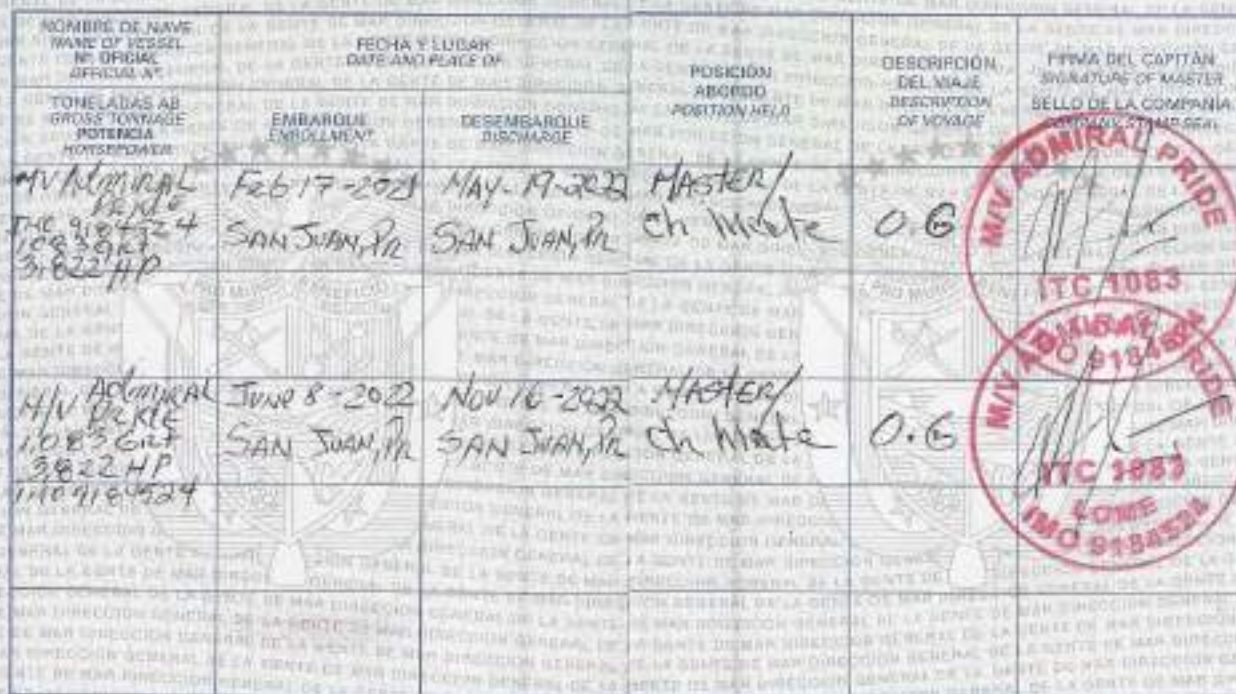 NOMBRE DE NAVE
NAME OF VESSEL
Nº. OFICIAL
OFFICIAL Nº.
TONELADAS AB
GROSS TONNAGE
POTENCIA
HORSEPOWER
FECHA Y LUGAR
DATE AND PLACE OF
EMBARQUE
ENROLLMENT
DESEMBARQUE
DISCHARGE
POSICIÓN
ABORDO
POSITION HELD
DESCRIPCIÓN
DEL VIAJE
DESCRIPTION
OF VOYAGE
FIRMA DEL CAPITÁN
SIGNATURE OF MASTER
SELLO DE LA COMPAÑIA
COMPANY STAMP SEAL
M/V Admiral
Pride
9184524
1,083 GRT
3,822 HP
Feb 17-2021
SAN JUAN, PR
MAY-19-2022
SAN JUAN, PR
MASTER/
Ch Mate
O.G
M/V ADMIRAL PRIDE
ITC 1083
IMO 9184524
M/V Admiral
Pride
1,083 GRT
3,822 HP
IMO 9184524
June 8-2022
SAN JUAN, PR
NOV 16-2022
SAN JUAN, PR
MASTER/
Ch Mate
O.G
M/V ADMIRAL PRIDE
ITC 1083
LOME
IMO 9184524
PRO MUNDI BENEFICIO
DIRECCION GENERAL DE LA GENTE DE MAR